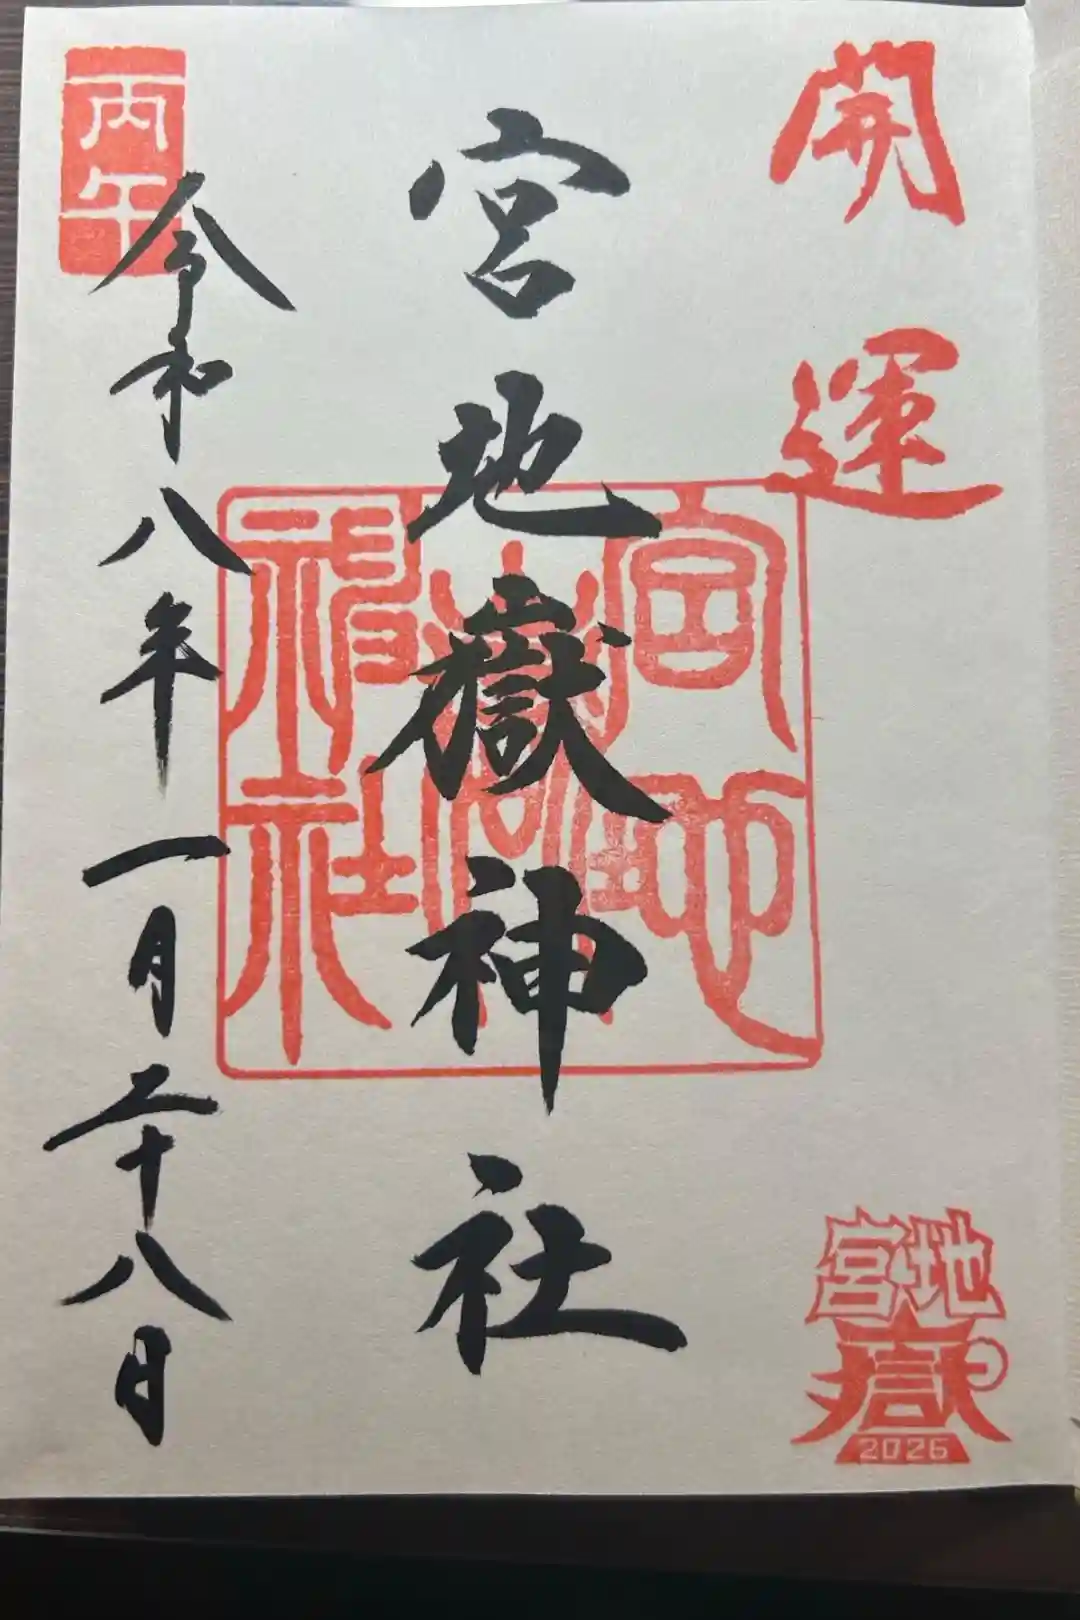 開運
宮地嶽
2026
宮地嶽神社
宮地嶽神社
丙午
令和八年一月二十八日